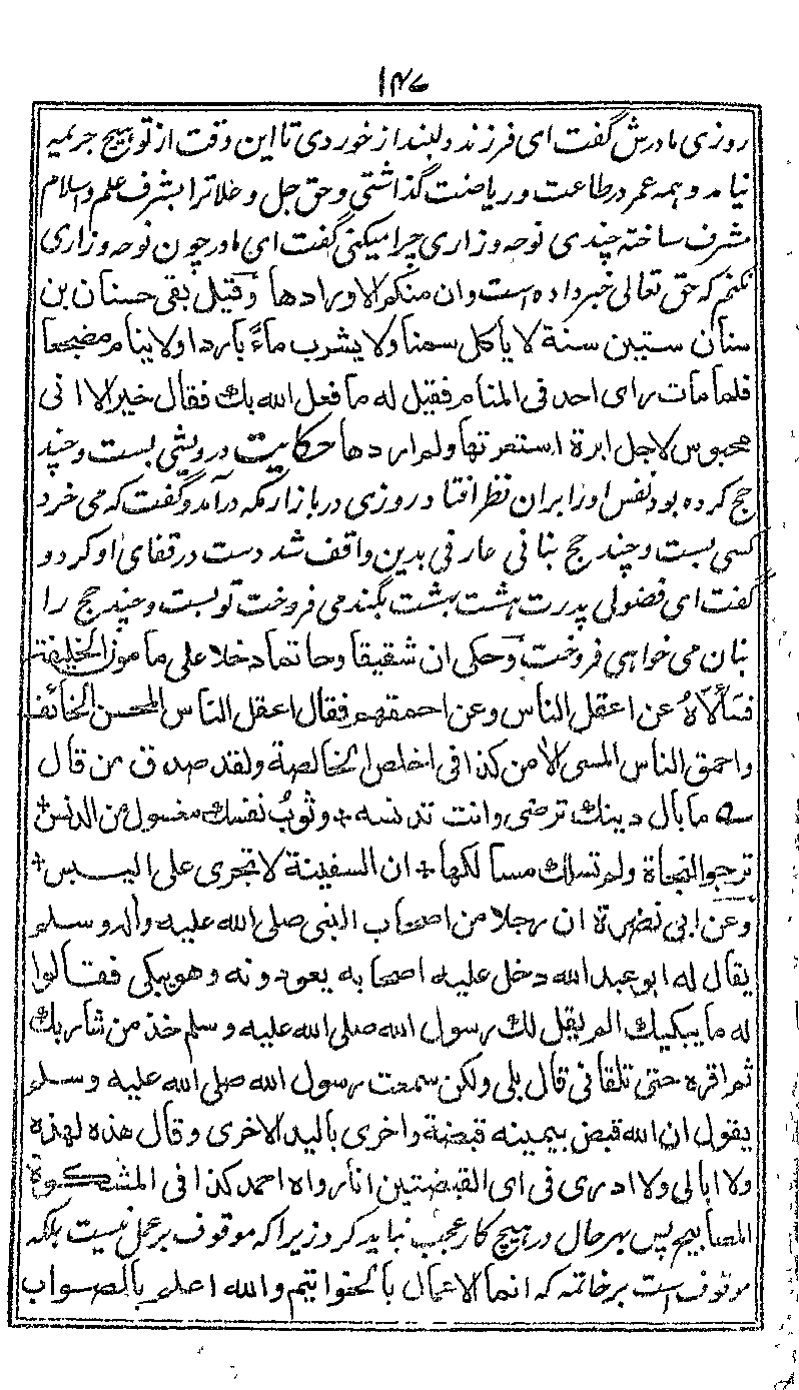 ۱۴۷
روزی مادرش گفت ای فرزند دلبند از خوردی تا این وقت از تو هیچ جریمه
نیامد و همه عمر در طاعت و ریاضت گذاشتی و حق جل و علا ترا بشرف علم و اسلام
مشرف ساخته چندی نوحه و زاری چرا میکنی گفت ای مادر چون نوحه و زاری
نکنم که حق تعالی خبر داده است وان منکم الا واردها وقیل بقی حسنان بن
سنان ستین سنة لا یأکل سمنا ولا یشرب ماءً باردا ولا ینام مضجعا
فلما مات رای احد فی المنام فقیل له ما فعل الله بك فقال خیر الا انی
محبوس لاجل ابرة استعرتها ولم اردها حکایت درویشی بست و چند
حج کرده بود نفس او را بران نظر افتاد روزی در بازار مکه درآمد و گفت که می خرد
کسی بست و چند حج بنانی عارفی بدین واقف شد دست در قفای او کرد و
گفت ای فضولی پدرت هشت بهشت بگندمی فروخت تو بست و چند حج را
بنان می خواهی فروخت وحکی ان شقیقا وحاتما دخلا علی مامون الخلیفة
فسألاهُ عن اعقل الناس وعن احمقهم فقال اعقل الناس المحسن الخائف
واحمق الناس المسی الامن کذا فی اخلص الخالصة ولقد صدق من قال
ـه ما بال دینك ترضی وانت تدنسه + وثوبُ نفسك مغسول من الدنس +
ترجو النجاة ولم تسلك مسالکها + ان السفینة لا تجری علی الیبس +
وعن ابی نضرة ان رجلا من اصحاب النبی صلی الله علیه واله وسلم
یقال له ابو عبد الله دخل علیه اصحابه یعودونه وهو یبکی فقالوا
له ما یبکیك الم یقل لك رسول الله صلی الله علیه وسلم خذ من شاربك
ثم اقره حتی تلقانی قال بلی ولکن سمعت رسول الله صلی الله علیه وسلم
یقول ان الله قبض بیمینه قبضة واخری بالید الاخری وقال هذه لهذه
ولا ابالی ولا ادری فی ای القبضتین انا رواه احمد کذا فی المشکوة
المصابیح پس بهر حال در هیچ کار عجب نباید کرد زیرا که موقوف بر عمل نیست بلکه
موقوف است بر خاتمه که انما الاعمال بالخواتیم والله اعلم بالصواب